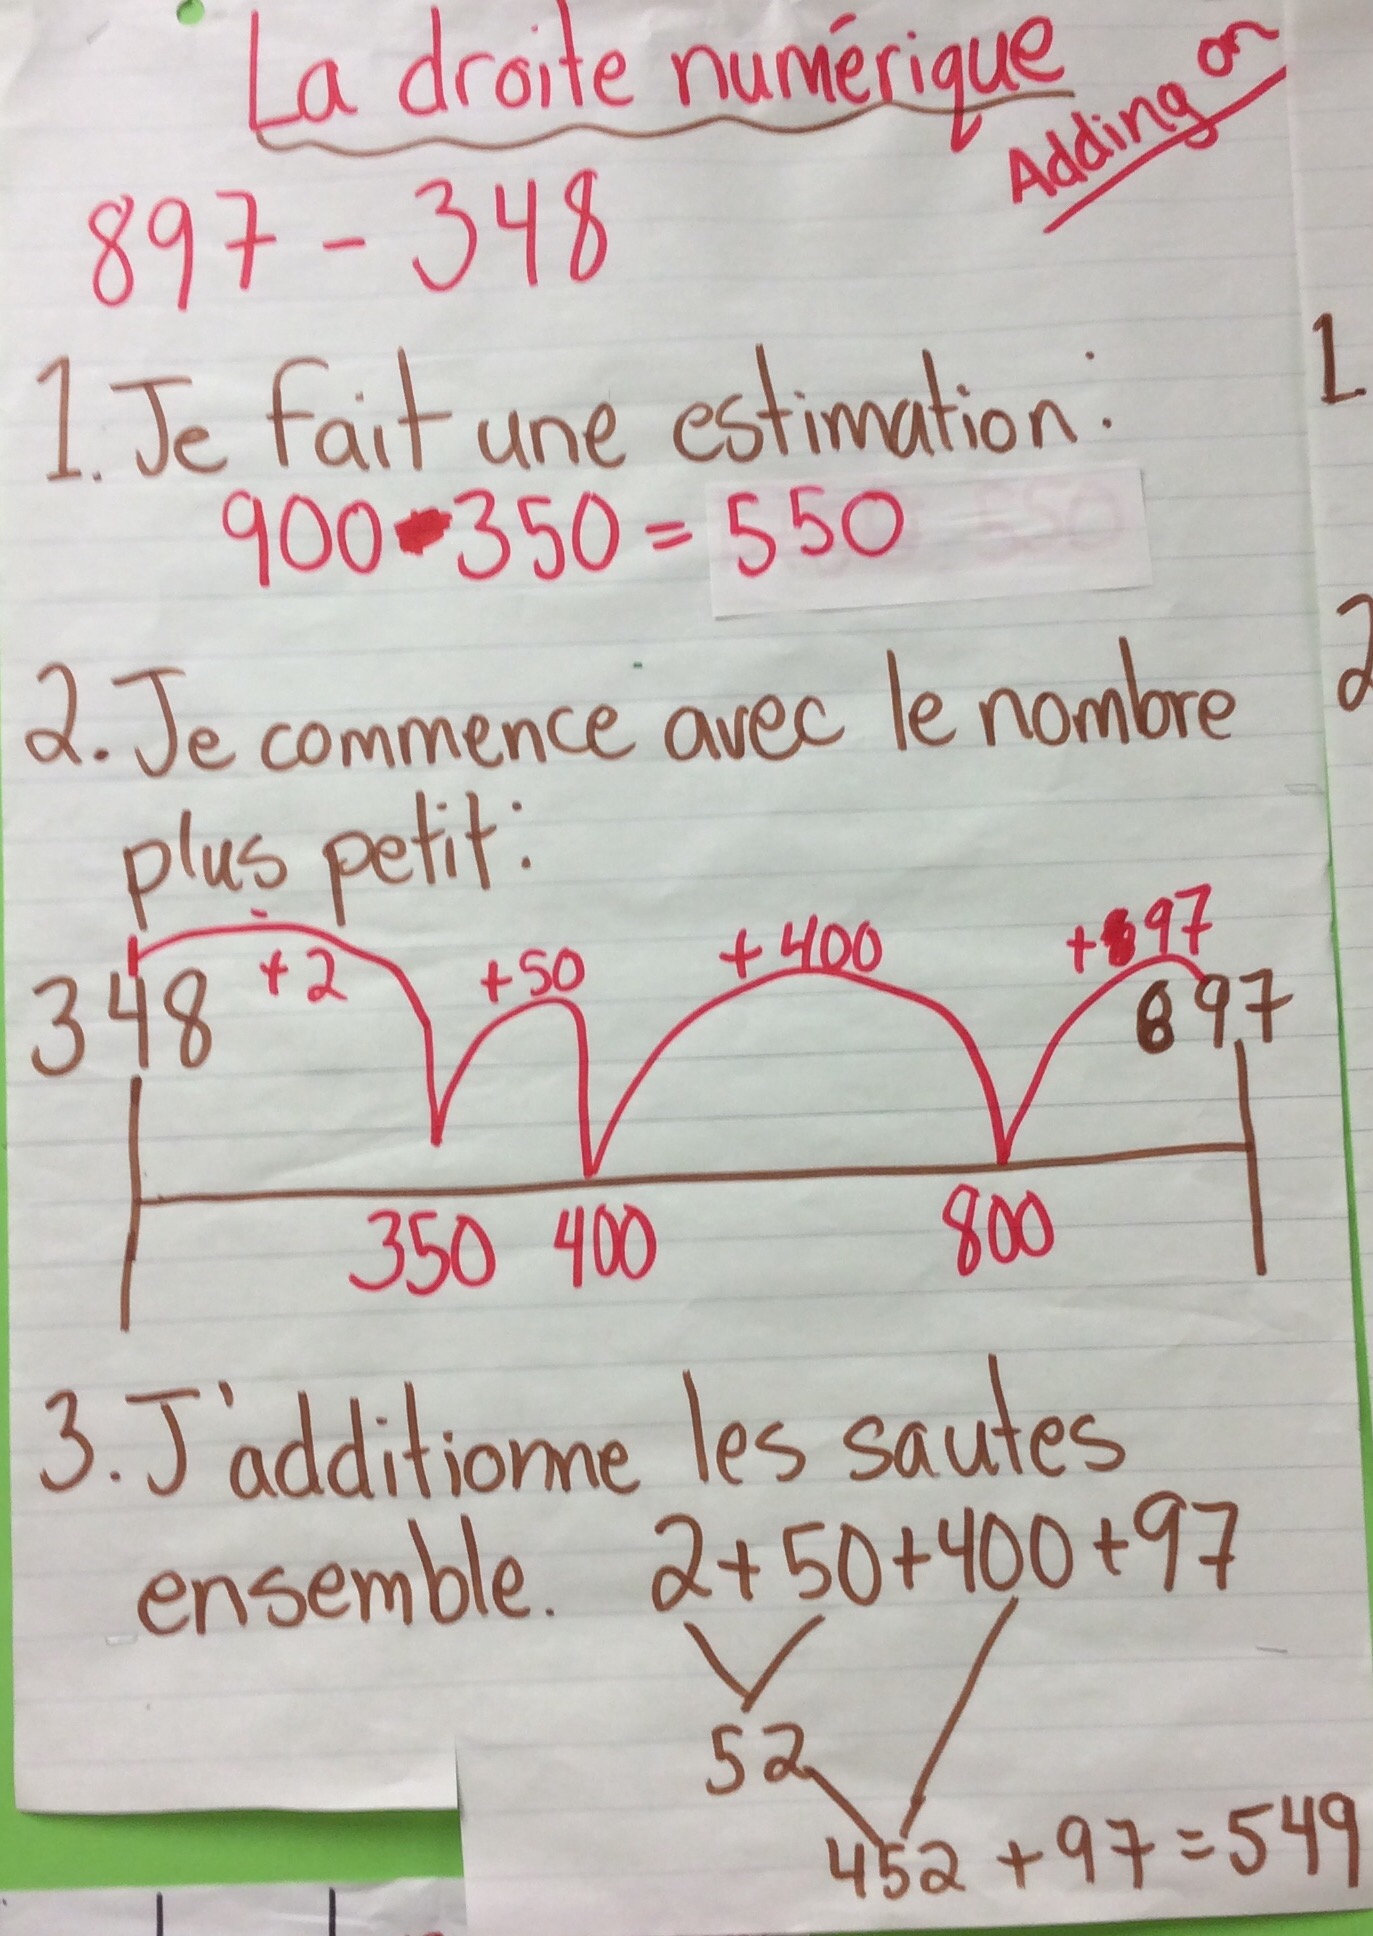 La droite numérique
Adding on
897 - 348
1. Je fait une estimation:
900 - 350 = 550
2. Je commence avec le nombre
plus petit:
+2 +50 +400 +97
348 897
350 400 800
3. J'additionne les sautes
ensemble. 2+50+400+97
52
452 + 97 = 549
1
2